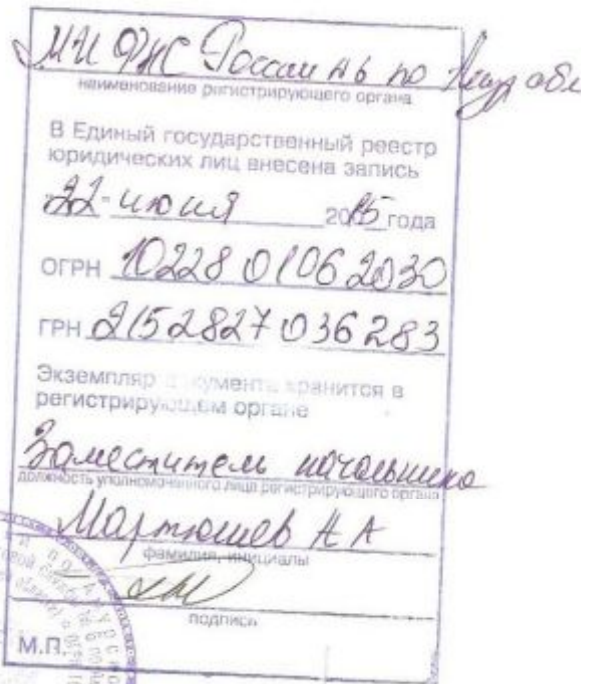 МИ ФНС России №6 по Амур обл
наименование регистрирующего органа
В Единый государственный реестр
юридических лиц внесена запись
22 июня 2015 года
ОГРН 1022801062030
ГРН 2152827036283
Экземпляр документа хранится в
регистрирующем органе
Заместитель начальника
должность уполномоченного лица регистрирующего органа
Мартюшев
фамилия, инициалы
подпись
М.П.